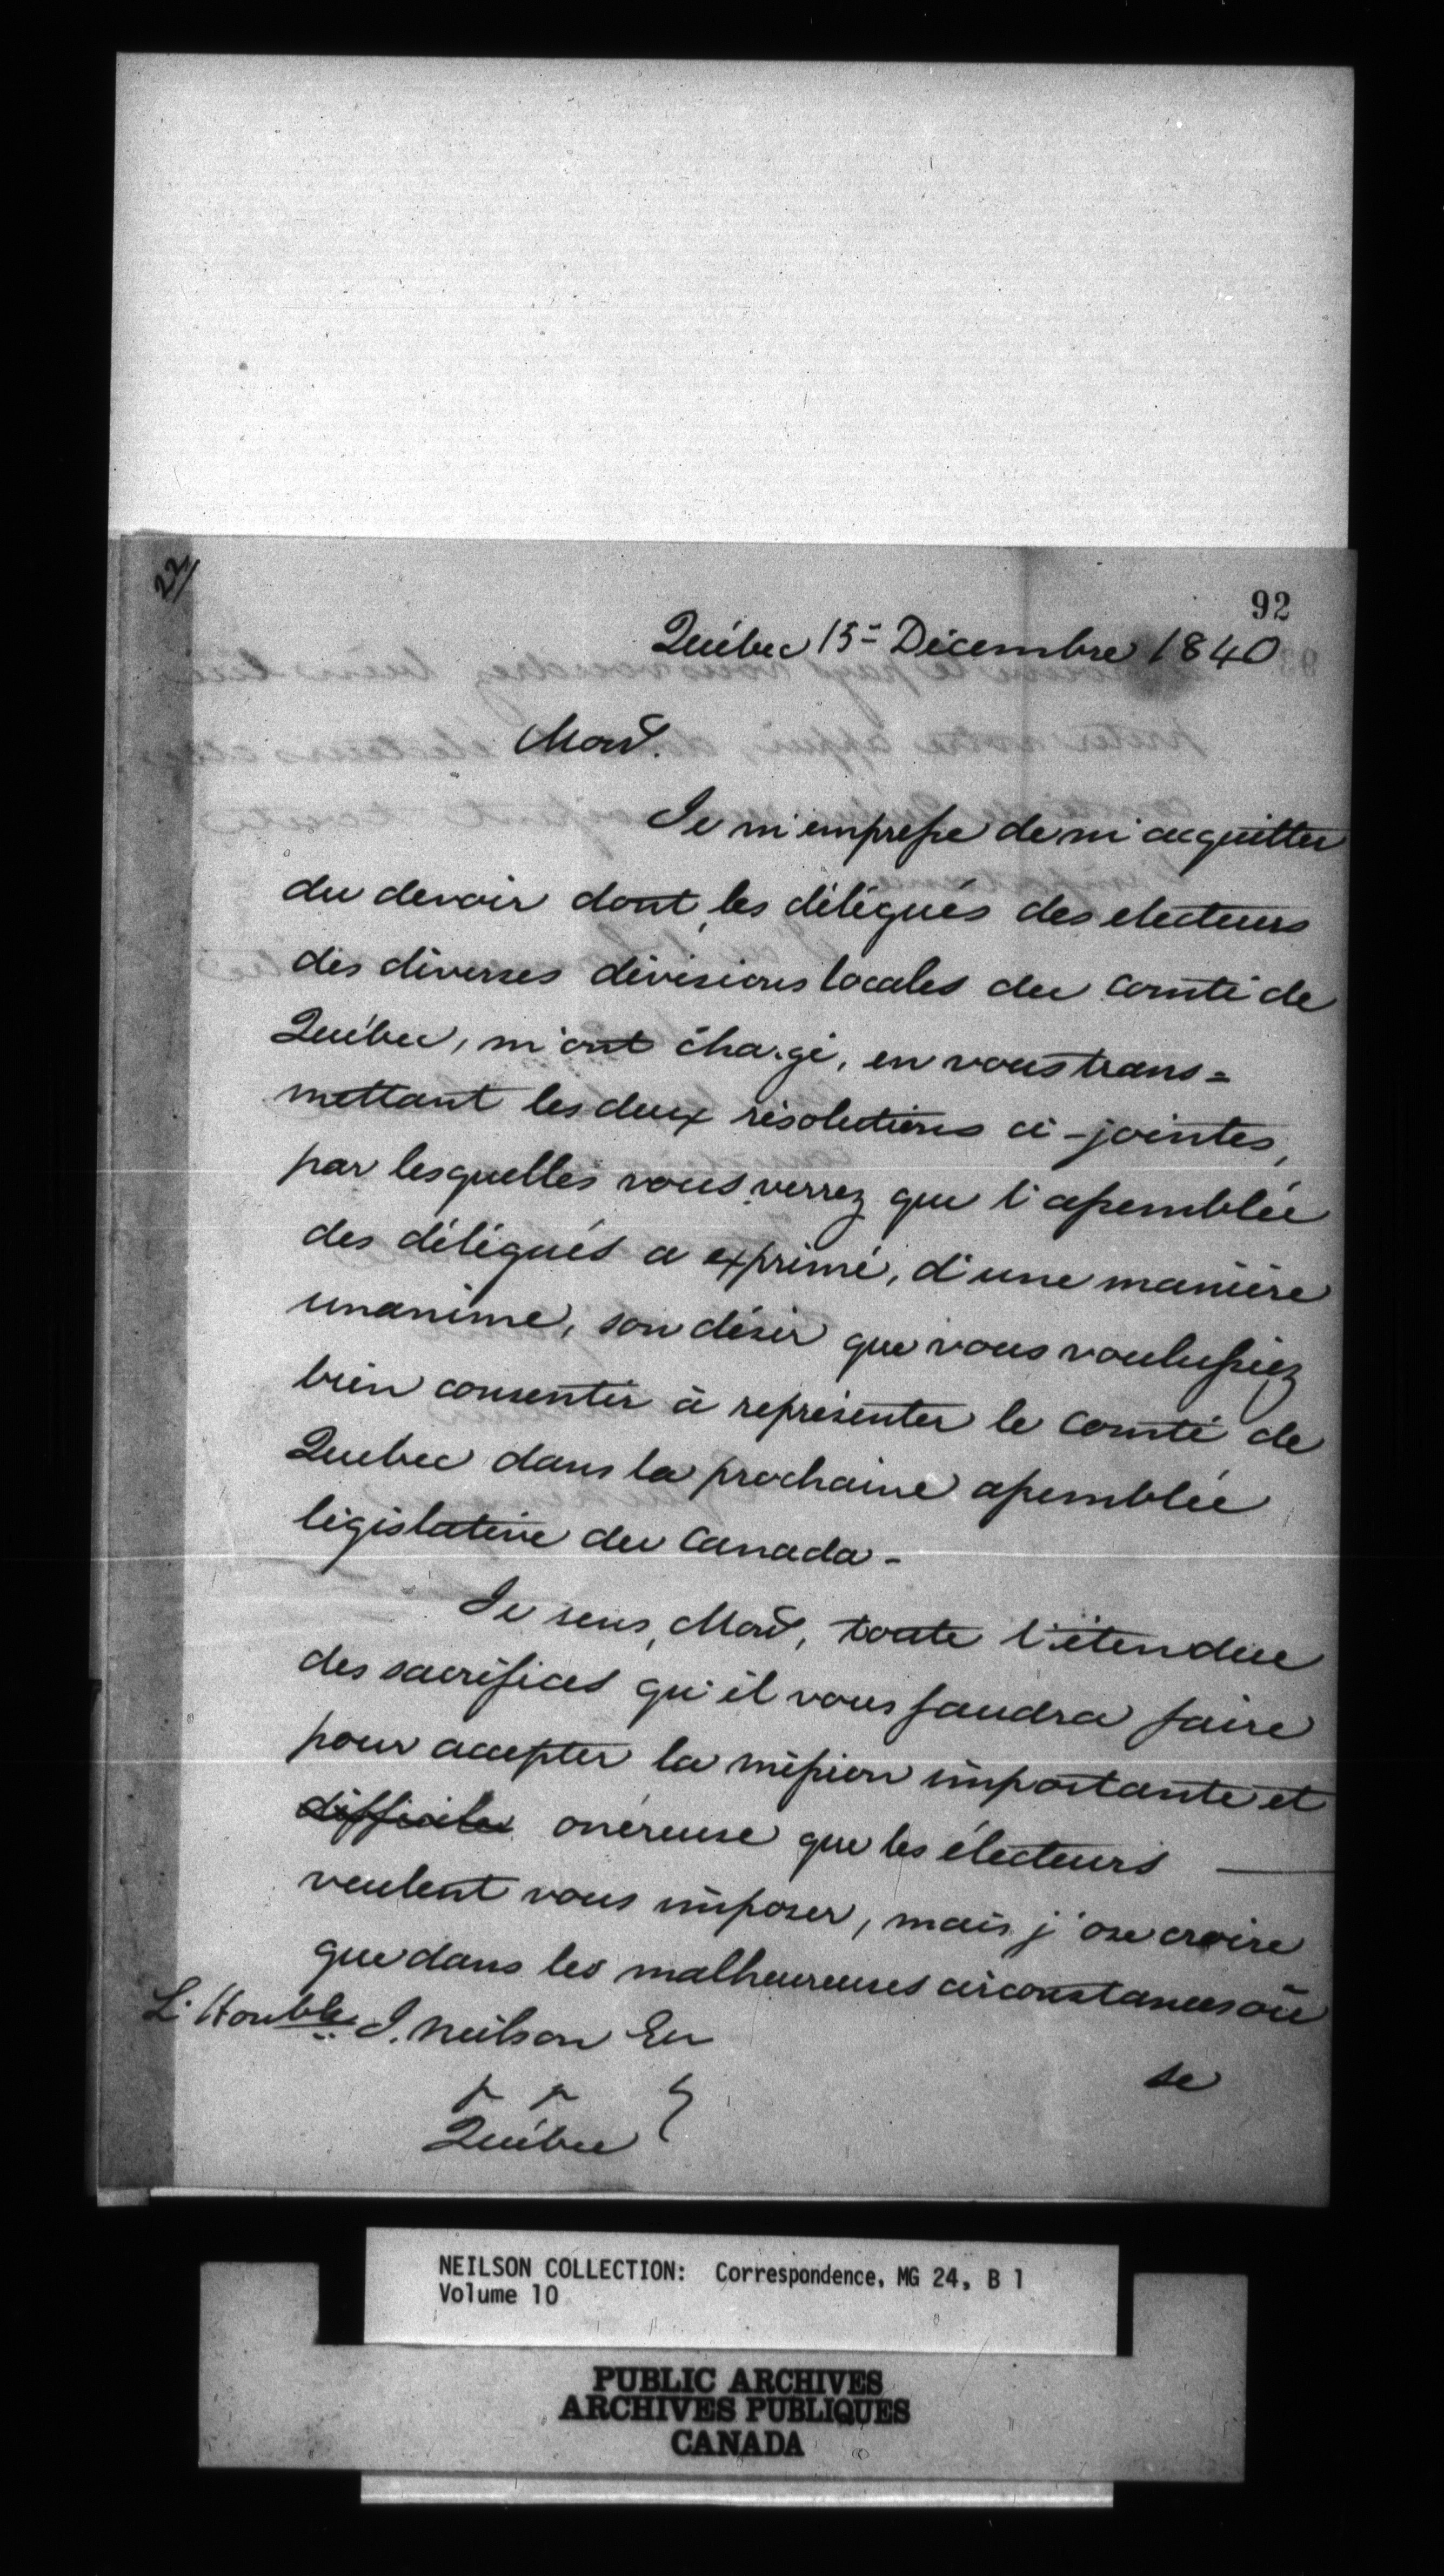 22/
92
Québec 15 Décembre 1840
Monr.
Je m'empresse de m'acquitter
du devoir dont les délégués des electeurs
des diverses divisions locales du comté de
Québec, m'ont chargé, en vous trans=
mettant les deux résolutions ci-jointes,
par lesquelles vous verrez que l'assemblée
des délégués a exprimé, d'une manière
unanime, son désir que vous voulussiez
bien consentir à représenter le comté de
Quebec dans la prochaine assemblée
législative du Canada -
Je sens, Monr, toute l'étendue
des sacrifices qu'il vous faudra faire
pour accepter la mission importante et
difficile onéreuse que les électeurs
veulent vous imposer, mais j'ose croire
que dans les malheureuses circonstances où
se
L'Honble J. Neilson Er
Québec
NEILSON COLLECTION: Correspondence, MG 24, B 1
Volume 10
PUBLIC ARCHIVES
ARCHIVES PUBLIQUES
CANADA